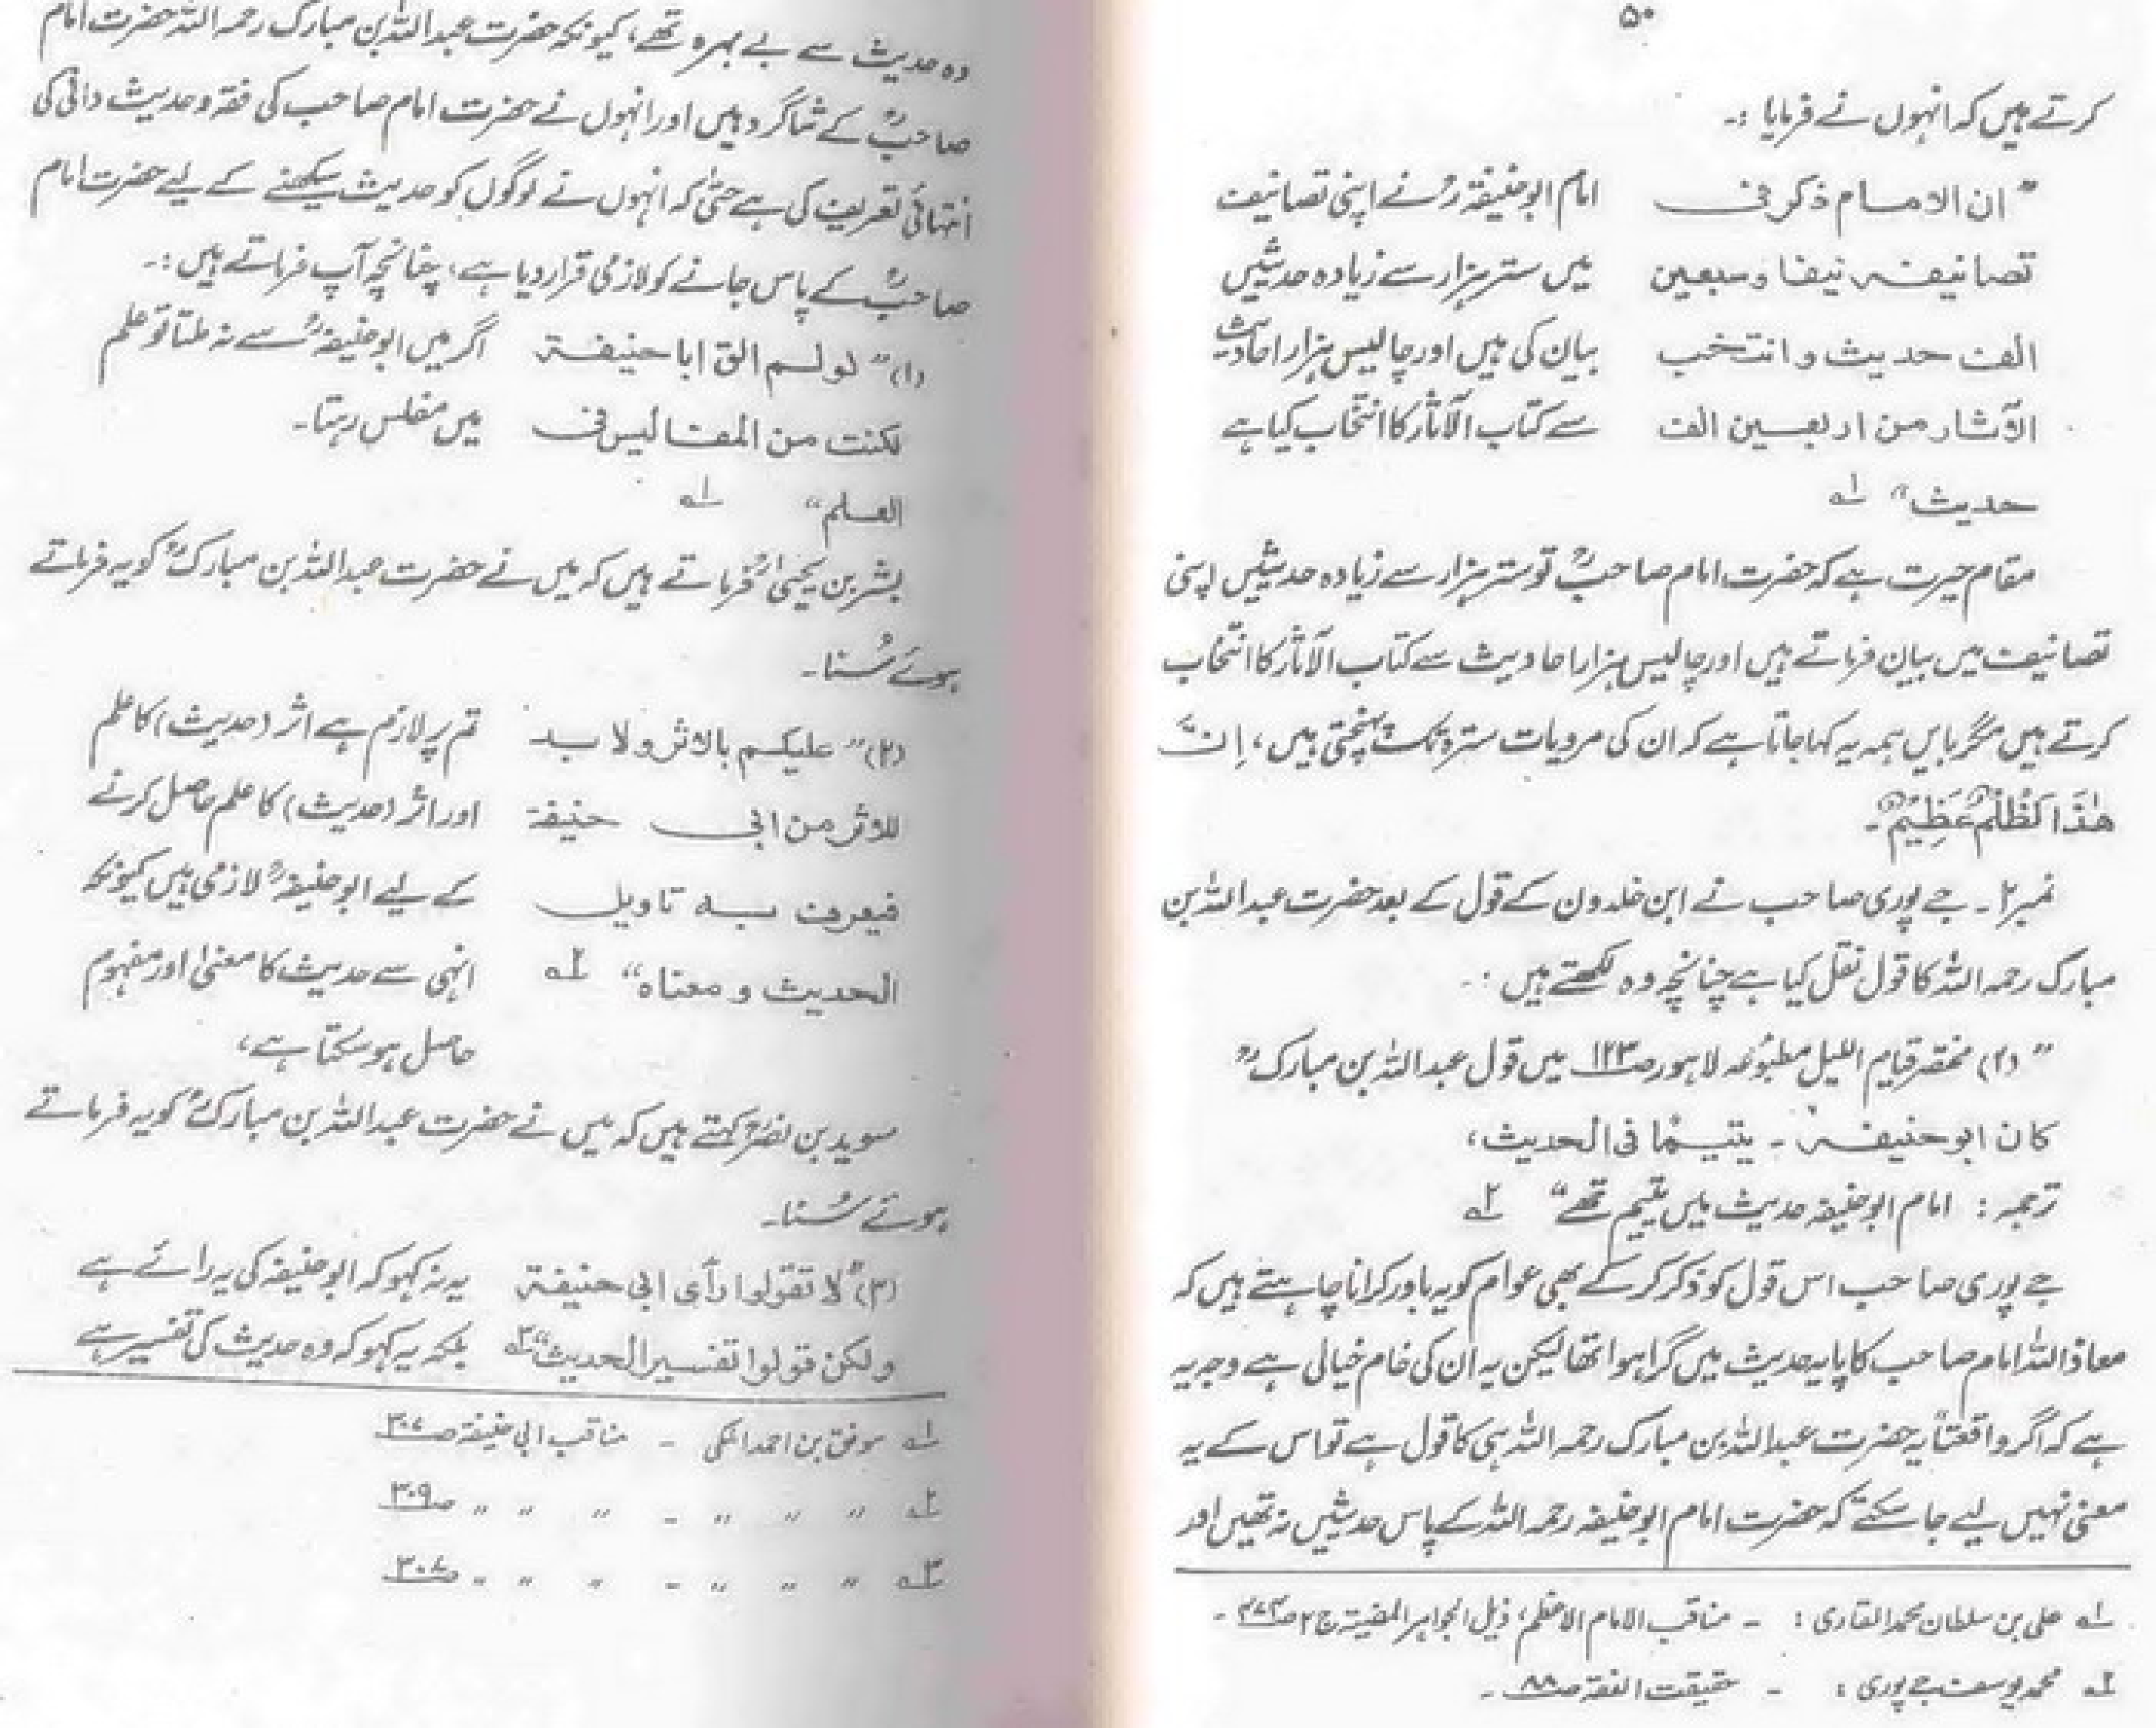 ۵۰
کرتے ہیں کہ انہوں نے فرمایا :۔
”ان الامام ذکر فی امام ابوحنیفہؒ نے اپنی تصانیف
تصانیفہ نیفا و سبعین میں ستر ہزار سے زیادہ حدیثیں
الف حدیث و انتخب بیان کی ہیں اور چالیس ہزار احادیث
الآثار من اربعین الف سے کتاب الآثار کا انتخاب کیا ہے
حدیث“ ۱ھ
مقام حیرت ہے کہ حضرت امام صاحبؒ تو ستر ہزار سے زیادہ حدیثیں اپنی
تصانیف میں بیان فرماتے ہیں اور چالیس ہزار احادیث سے کتاب الآثار کا انتخاب
کرتے ہیں مگر بایں ہمہ یہ کہا جاتا ہے کہ ان کی مرویات سترہ تک پہنچتی ہیں، اِنَّ
ھٰذَا لَظُلْمٌ عَظِیْمٌ۔
نمبر ۲۔ جے پوری صاحب نے ابن خلدون کے قول کے بعد حضرت عبداللہ بن
مبارک رحمہ اللہ کا قول نقل کیا ہے چنانچہ وہ لکھتے ہیں :۔
”(۲) مختصر قیام اللیل مطبوعہ لاہور صـ۱۲۳ میں قول عبداللہ بن مبارکؒ
کان ابوحنیفہ ۔ یتیمًا فی الحدیث،
ترجمہ : امام ابوحنیفہ حدیث میں یتیم تھے“ ۲ھ
جے پوری صاحب اس قول کو ذکر کرکے بھی عوام کو یہ باور کرانا چاہتے ہیں کہ
معاذ اللہ امام صاحب کا پایہ حدیث میں گرا ہوا تھا لیکن یہ ان کی خام خیالی ہے وجہ یہ
ہے کہ اگر واقعتاً یہ حضرت عبداللہ بن مبارک رحمہ اللہ ہی کا قول ہے تو اس کے یہ
معنی نہیں لیے جا سکتے کہ حضرت امام ابوحنیفہ رحمہ اللہ کے پاس حدیثیں نہ تھیں اور
۱ھ علی بن سلطان محمد القاری : ۔ مناقب الامام الاعظم، ذیل الجواہر المضیۃ ج ۲ صـ۴۷۴ ۔
۲ھ محمد یوسف جے پوری : ۔ حقیقت الفقہ صـ۸۸ ۔
وہ حدیث سے بے بہرہ تھے، کیونکہ حضرت عبداللہ بن مبارک رحمہ اللہ حضرت امام
صاحبؒ کے شاگرد ہیں اور انہوں نے حضرت امام صاحب کی فقہ و حدیث دانی کی
انتہائی تعریف کی ہے حتٰی کہ انہوں نے لوگوں کو حدیث سیکھنے کے لیے حضرت امام
صاحبؒ کے پاس جانے کو لازمی قرار دیا ہے، چنانچہ آپ فرماتے ہیں :۔
(۱)”لو لم الق ابا حنیفۃ اگر میں ابوحنیفہؒ سے نہ ملتا تو علم
لکنت من المفالیس فی میں مفلس رہتا۔
العلم“ ۱ھ
بشر بن یحییٰؒ فرماتے ہیں کہ میں نے حضرت عبداللہ بن مبارکؒ کو یہ فرماتے
ہوئے سُنا۔
(۲)”علیکم بالاثر ولا بد تم پر لازم ہے اثر (حدیث) کا علم
للاثر من ابی حنیفۃ اور اثر (حدیث) کا علم حاصل کرنے
فیعرف بہ تاویل کے لیے ابوحنیفہؒ لازمی ہیں کیونکہ
الحدیث و معناہ“ ۲ھ انہی سے حدیث کا معنیٰ اور مفہوم
حاصل ہو سکتا ہے،
سوید بن نصرؒ کہتے ہیں کہ میں نے حضرت عبداللہ بن مبارکؒ کو یہ فرماتے
ہوئے سُنا۔
(۳)”لا تقولوا رأی ابی حنیفۃ یہ نہ کہو کہ ابوحنیفہ کی یہ رائے ہے
ولکن قولوا تفسیر الحدیث“ ۳ھ بلکہ یہ کہو کہ وہ حدیث کی تفسیر ہے
۱ھ موفق بن احمد المکی ۔ مناقب ابی حنیفۃ صـ۳۰۷
۲ھ ” ” ” ۔ ” ” ” صـ۳۰۹
۳ھ ” ” ” ۔ ” ” ” صـ۳۰۷